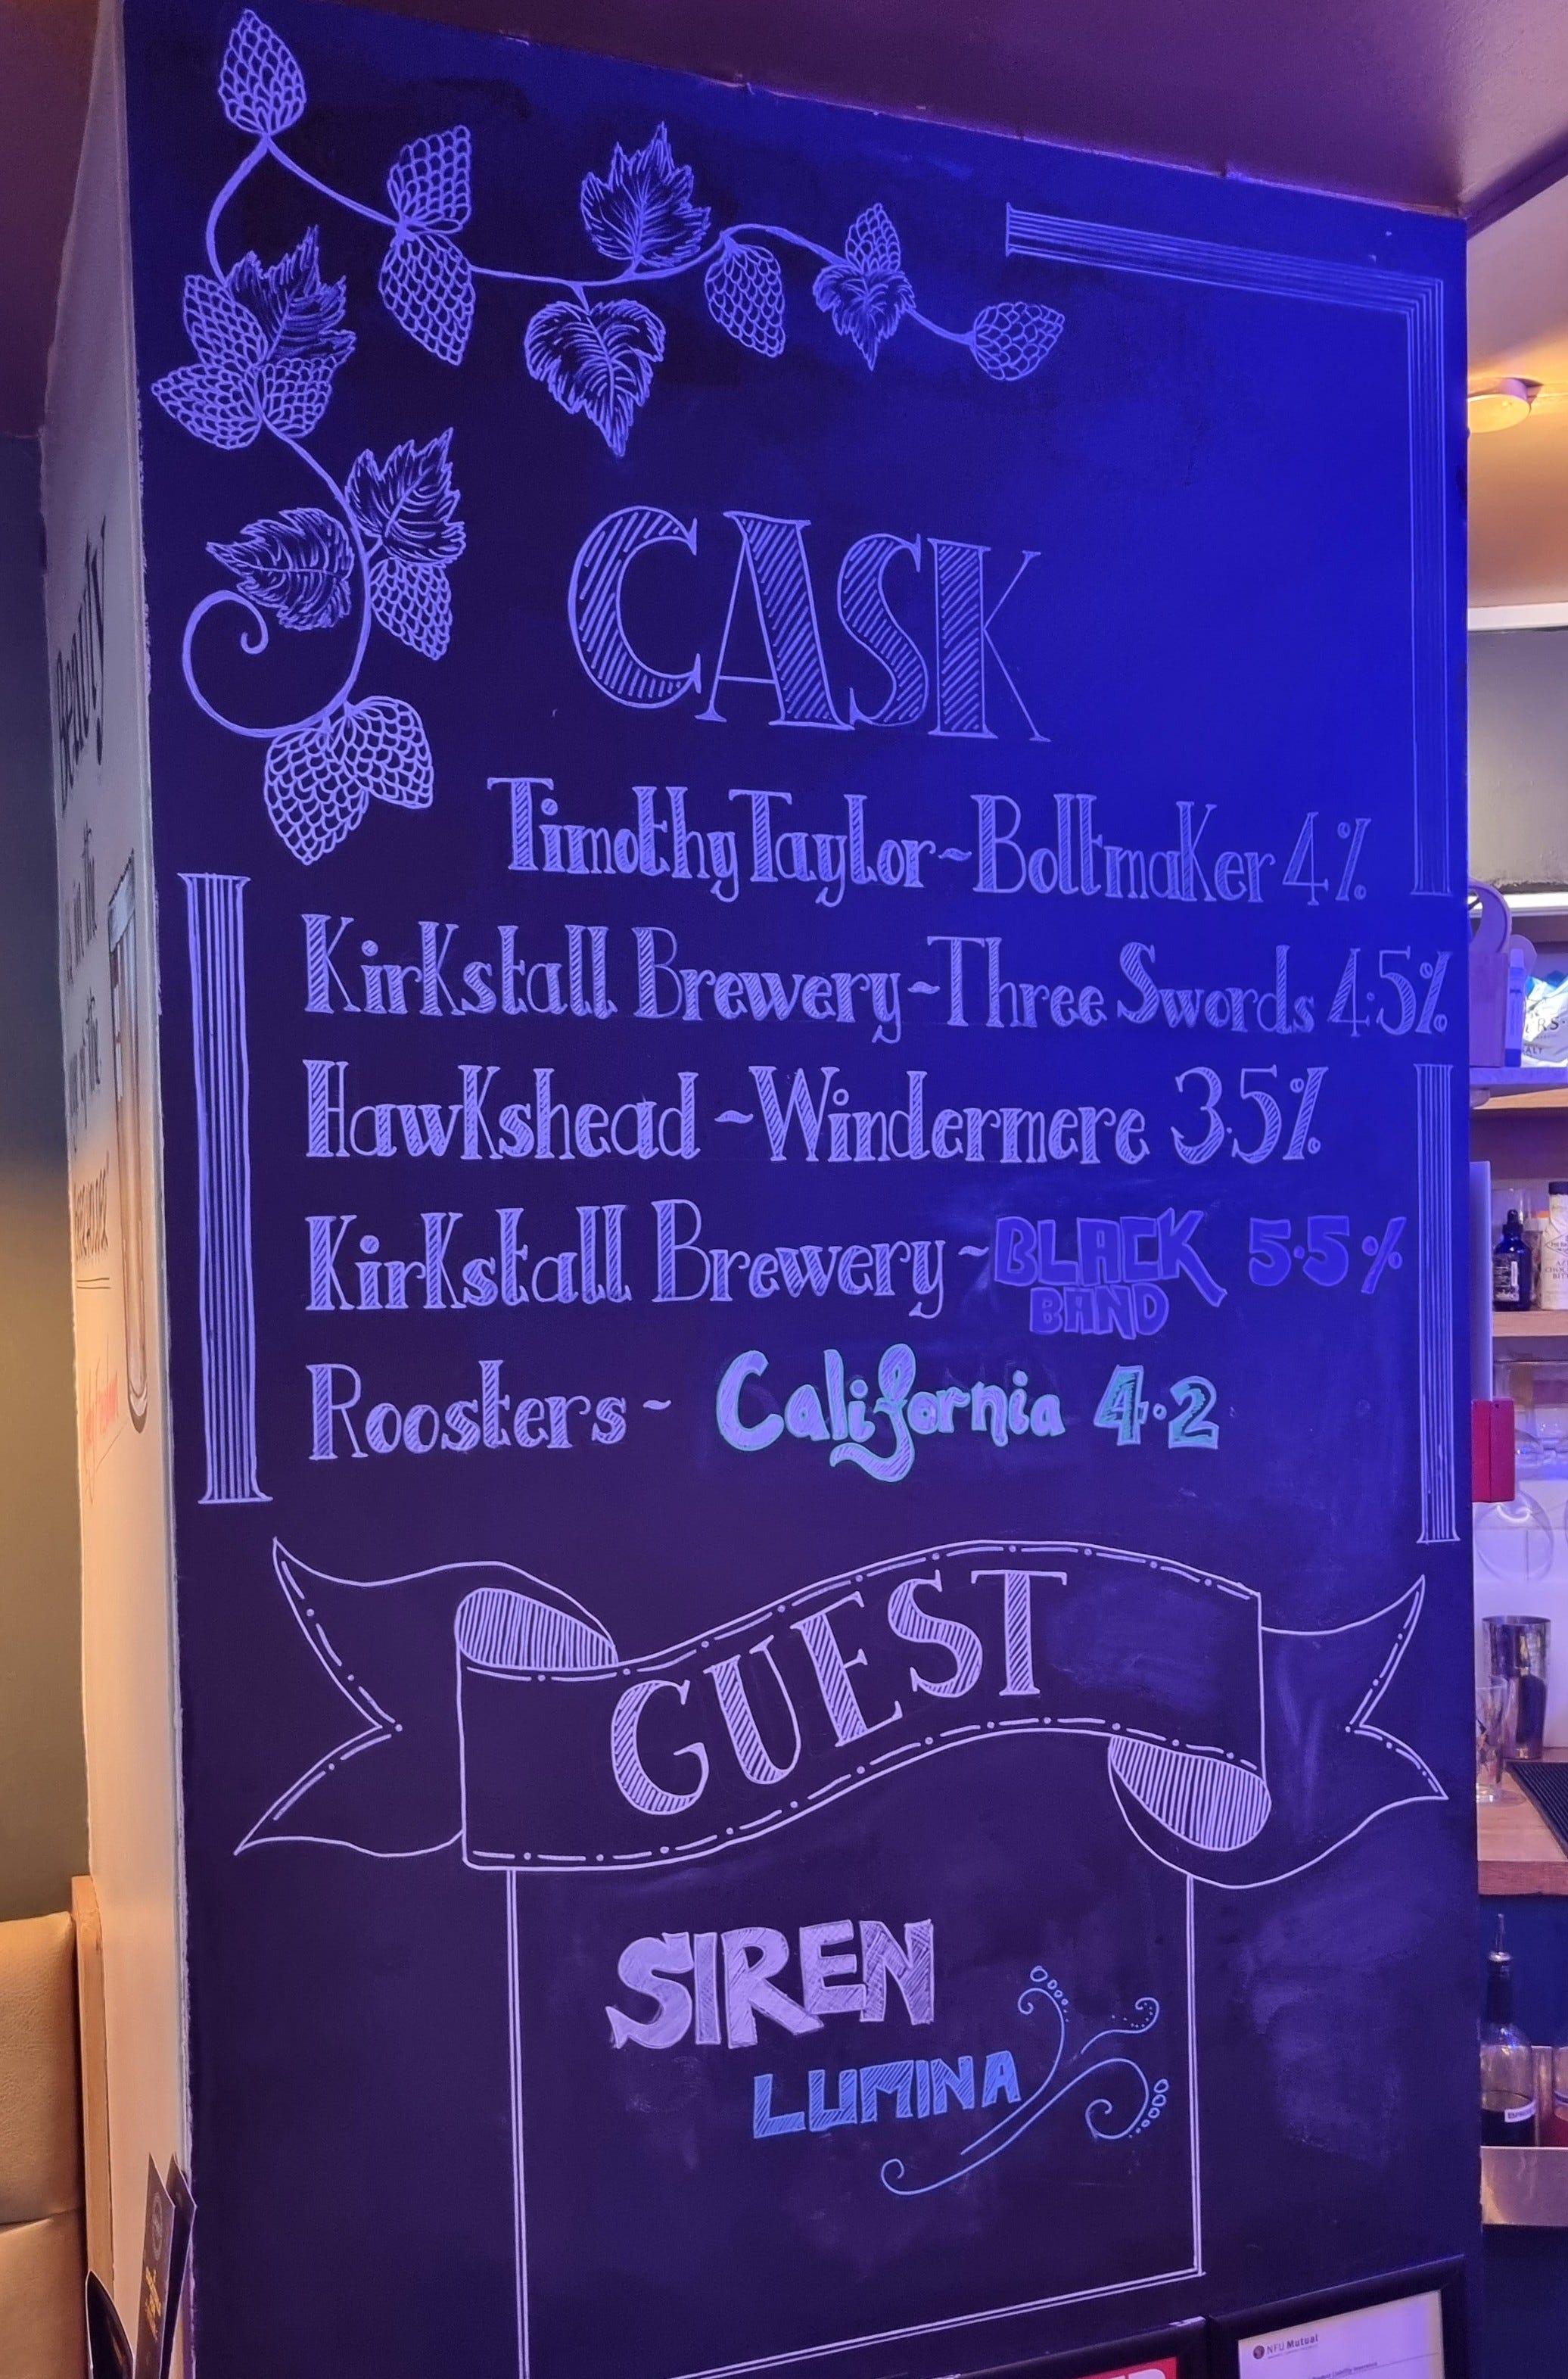 CASK
Timothy Taylor ~ Boltmaker 4%
Kirkstall Brewery ~ Three Swords 4.5%
Hawkshead ~ Windermere 3.5%
Kirkstall Brewery ~ BLACK BAND 5.5%
Roosters ~ California 4.2
GUEST
SIREN
LUMINA
NFU Mutual